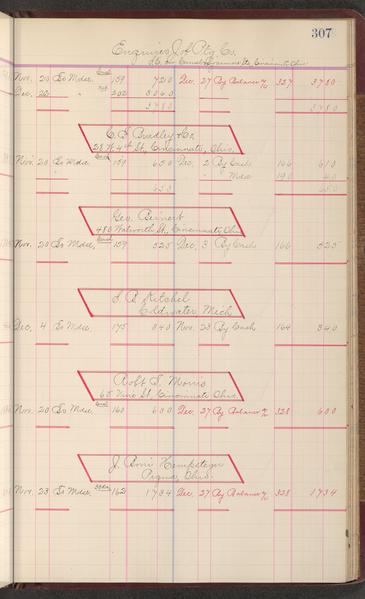 307
Enquirer Job Ptg Co.
Cincinnati, Ohio
Nov. 20 To Mdse. 159 720 Dec. 27 By Balance 327 3780
Dec. 22 " 202 3060
3780 3780
C. F. Bradley & Co.
28 W. 4th St., Cincinnati, Ohio.
Nov. 20 To Mdse. 159 650 Dec. 2 By Cash 166 610
" Mdse 190 40
650 650
Geo. Bernert
480 Walworth St., Cincinnati, Ohio
Nov. 20 To Mdse. 159 525 Dec. 3 By Cash 166 525
S. B. Kitchel
Coldwater, Mich
Dec. 4 To Mdse. 175 340 Nov. 23 By Cash 164 340
Robt. S. Morris
65 Vine St. Cincinnati Ohio.
Nov. 20 To Mdse. 160 600 Dec. 27 By Balance 328 600
J. Kempsteyer
Piqua, Ohio.
Nov. 23 To Mdse. 30 da 162 1734 Dec. 27 By Balance 328 1734